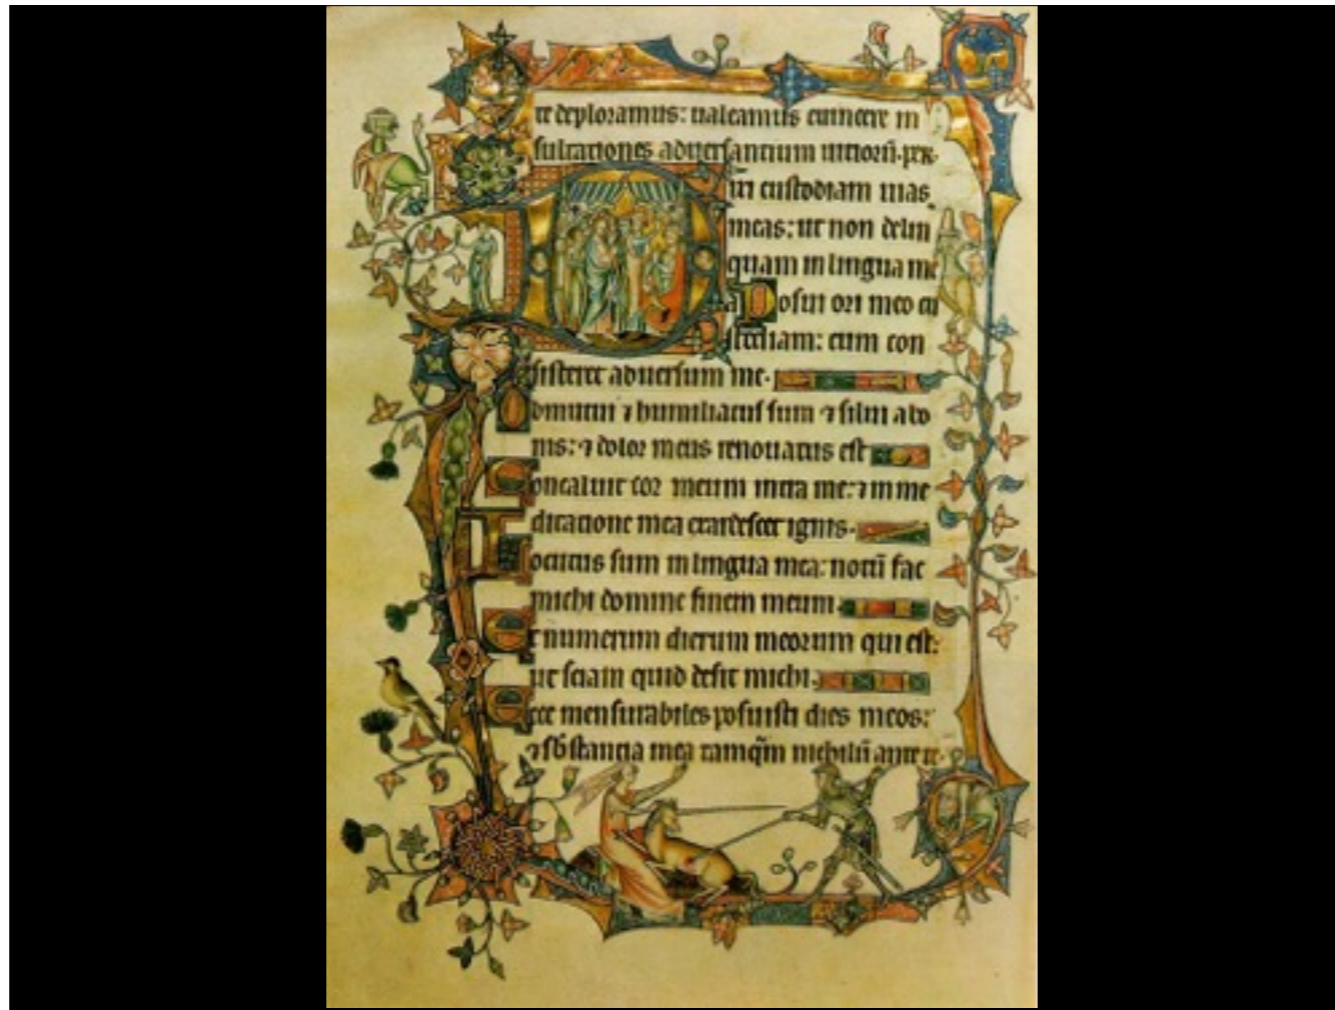 te deploramus: ualeamus euincere in
sultationes aduersantium uitiorū. per.
Dixi custodiam uias
meas: ut non delin
quam in lingua me
a Posui ori meo cu
stodiam: cum con
sisteret aduersum me.
Obmutui ⁊ humiliatus sum ⁊ silui a bo
nis: ⁊ dolor meus renouatus est
Concaluit cor meum intra me: ⁊ in me
ditatione mea exardescet ignis.
Locutus sum in lingua mea: notū fac
michi domine finem meum
Et numerum dierum meorum qui est:
ut sciam quid desit michi.
Ecce mensurabiles posuisti dies meos:
⁊ sb̄stantia mea tamq̄m nichilū ante te.